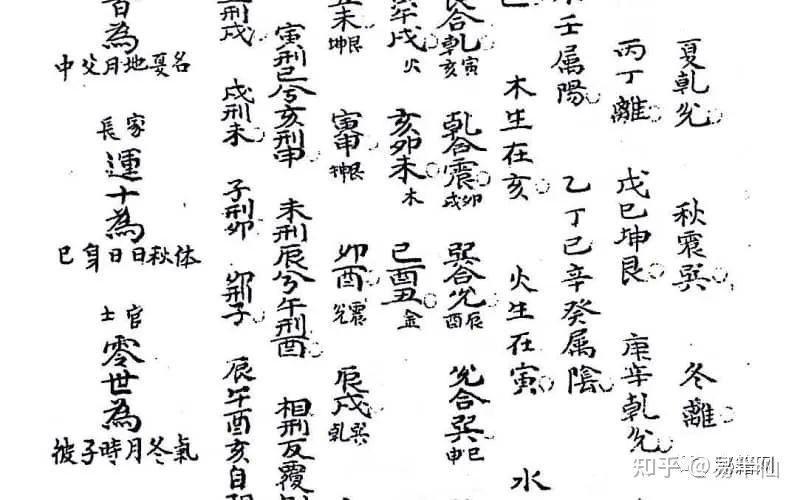 夏乾兊 秋震巽 冬離
丙丁離 戊巳坤艮 庚辛乾兊
壬属陽 乙丁巳辛癸属陰
木生在亥 火生在寅 水
合乾 寅亥 乾合震 卯戌 巽合兊 辰酉 兊合巽 巳申
午戌 火 亥卯未 木 巳酉丑 金
未 坤艮 寅申 坤艮 卯酉 兊震 辰戌 乾巽
寅刑巳兮亥刑申 未刑辰兮午刑酉 相刑反覆
刑戌 戌刑未 子刑卯 卯刑子 辰午酉亥自
為
中父月地夏名
長家
運十為
巳身日日秋体
士官
零世為
彼子時月冬氣
知乎
秘籍网